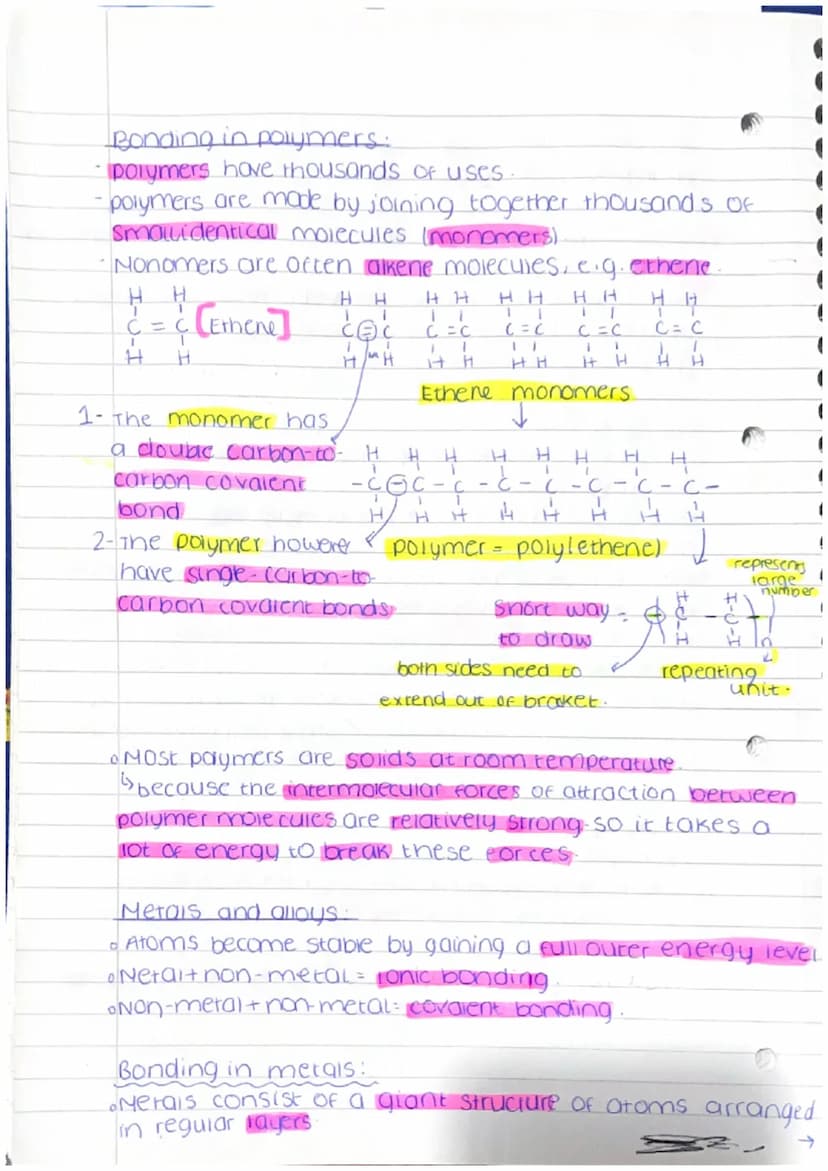 Bonding in polymers:
- polymers have thousands of uses.
- polymers are made by joining together thousands of
small identical molecules (monomers)
- Monomers are often alkene molecules, e.g. ethene.
H H
C = C [Ethene]
H H
H H H H H H H H H H
C = C C = C C = C C = C C = C
H H H H H H H H H H
Ethene monomers
1- The monomer has
a double carbon-to-
carbon covalent
bond
H H H H H H H H
- C - C - C - C - C - C - C - C -
H H H H H H H H
2- The polymer however
have single-carbon-to-
carbon covalent bonds
polymer = poly(ethene)
represents
large
number
Short way =
to draw
H H
C - C
H H n
both sides need to
extend out of bracket.
repeating
unit.
Most polymers are solids at room temperature.
↳ because the intermolecular forces of attraction between
polymer molecules are relatively strong so it takes a
lot of energy to break these forces.
Metals and alloys:
Atoms become stable by gaining a full outer energy level
Metal + non-metal = ionic bonding.
Non-metal + non-metal = covalent bonding.
Bonding in metals:
Metals consist of a giant structure of atoms arranged
in regular layers
→